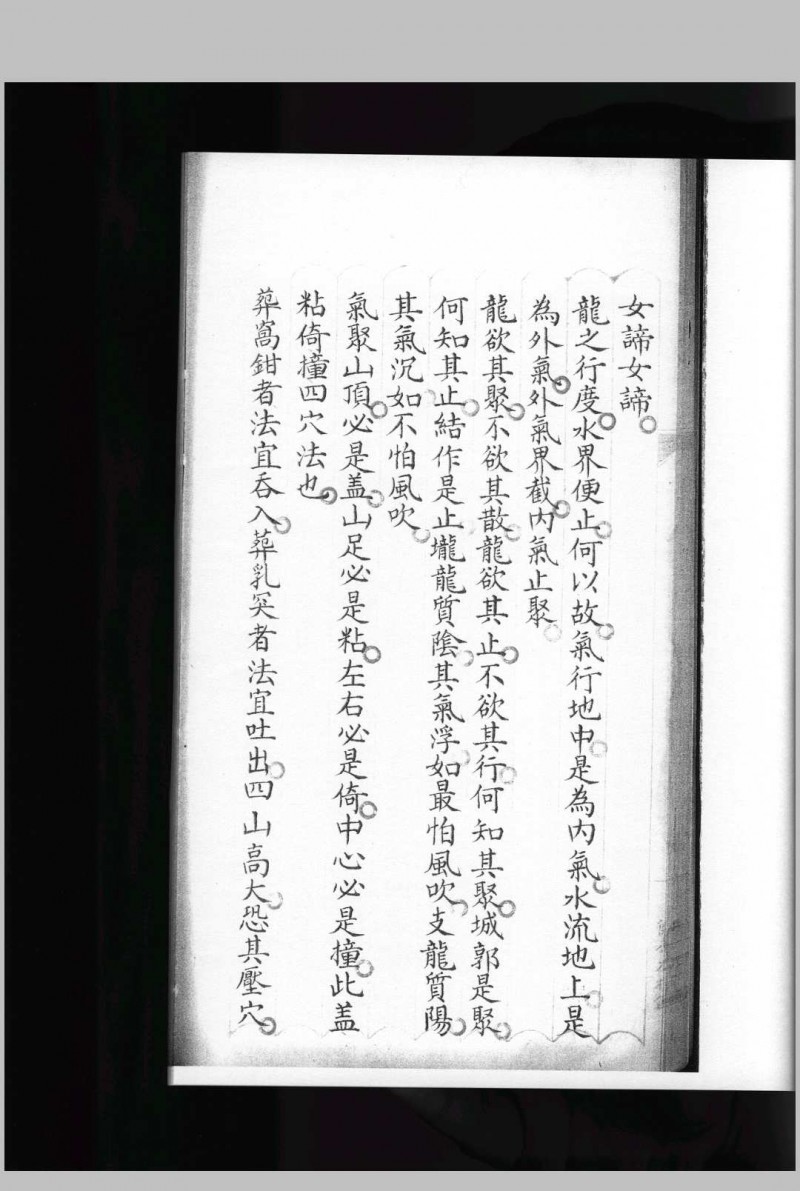 女諦女諦
龍之行度水界便止何以故氣行地中是為内氣水流地上是
為外氣外氣界截内氣止聚
龍欲其聚不欲其散龍欲其止不欲其行何知其聚城郭是聚
何知其止結作是止壠龍質陰其氣浮如最怕風吹支龍質陽
其氣沉如不怕風吹
氣聚山頂必是盖山足必是粘左右必是倚中心必是撞此盖
粘倚撞四穴法也
葬窩鉗者法宜吞入葬乳突者法宜吐出四山高大恐其壓穴